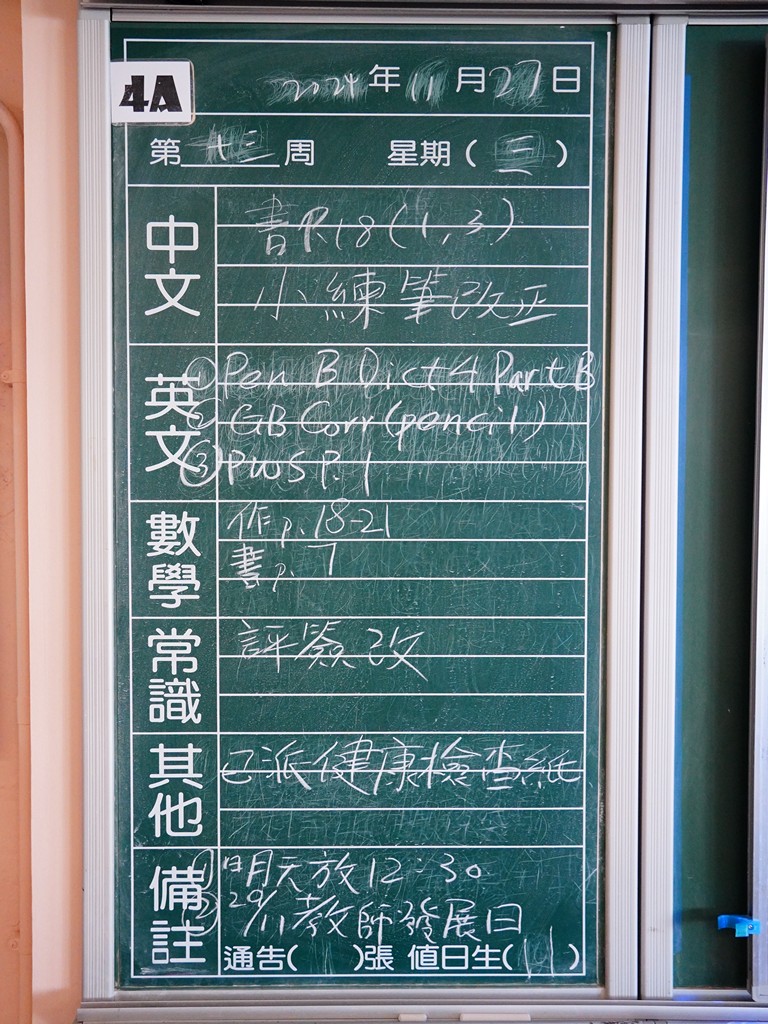 4A
2024年11月27日
第十三周 星期(三)
中文
書P.18(1,3)
小練筆改正
英文
① Pen B Dict 4 Part B
② GB Corr (pencil)
③ PWS P.1
數學
作p.18-21
書p.7
常識
評簽改
其他
已派健康檢查紙
備註
① 明天放12:30
② 29/11教師發展日
通告( )張 值日生(11)